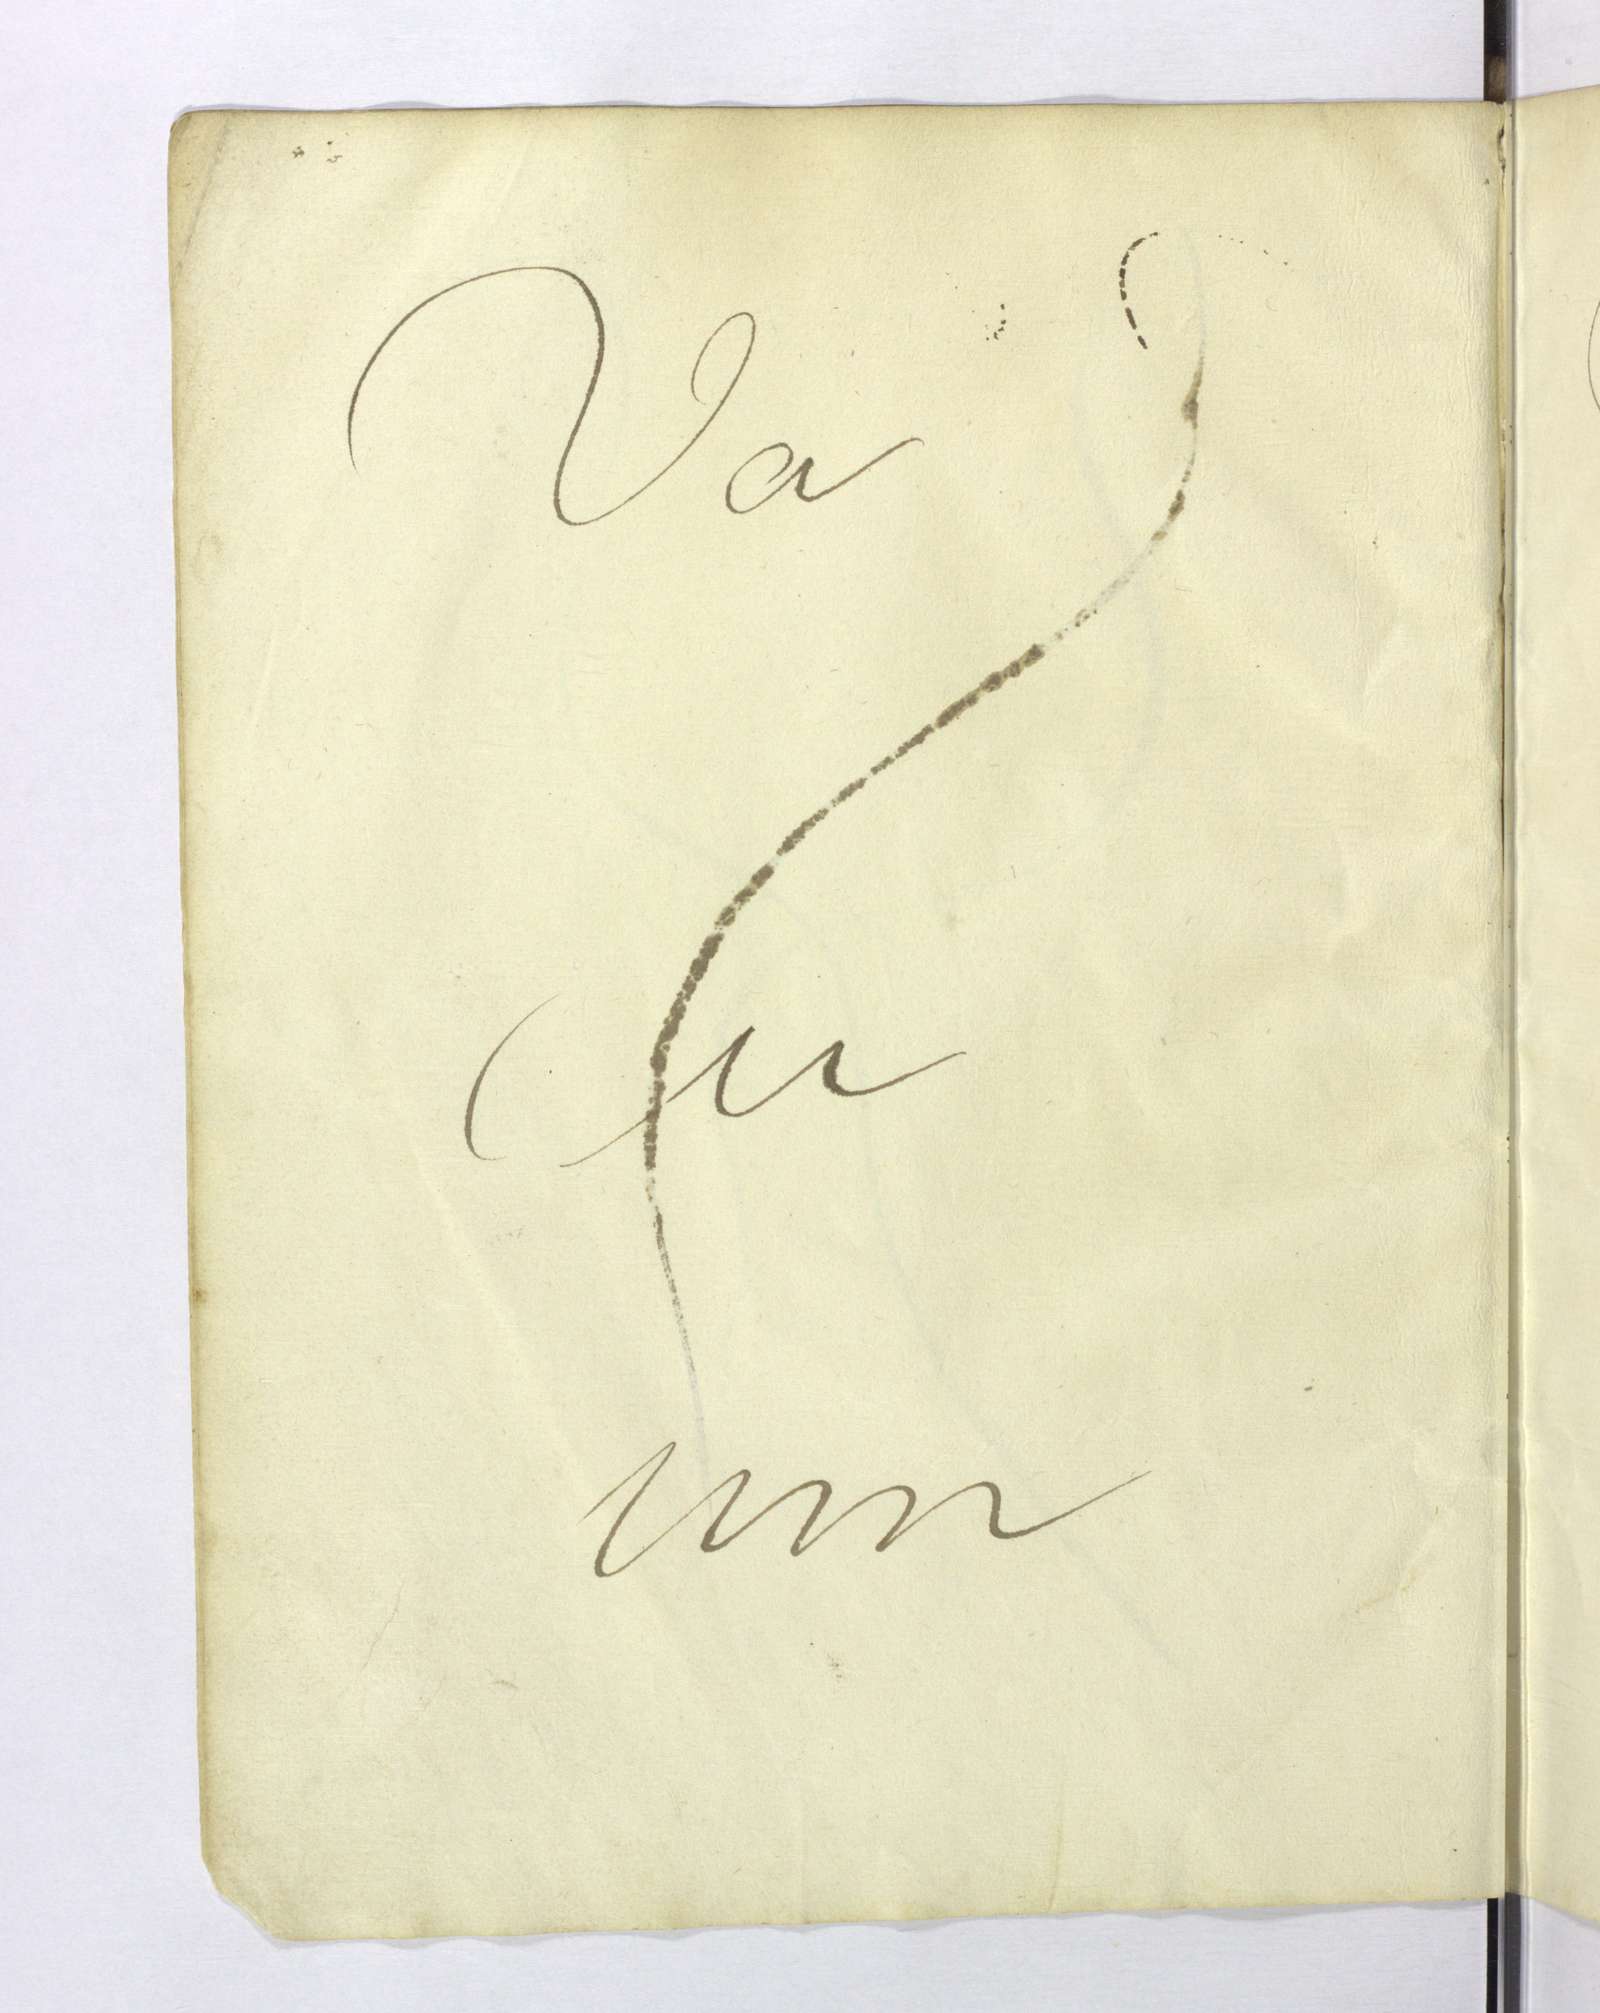 Va
cu
um